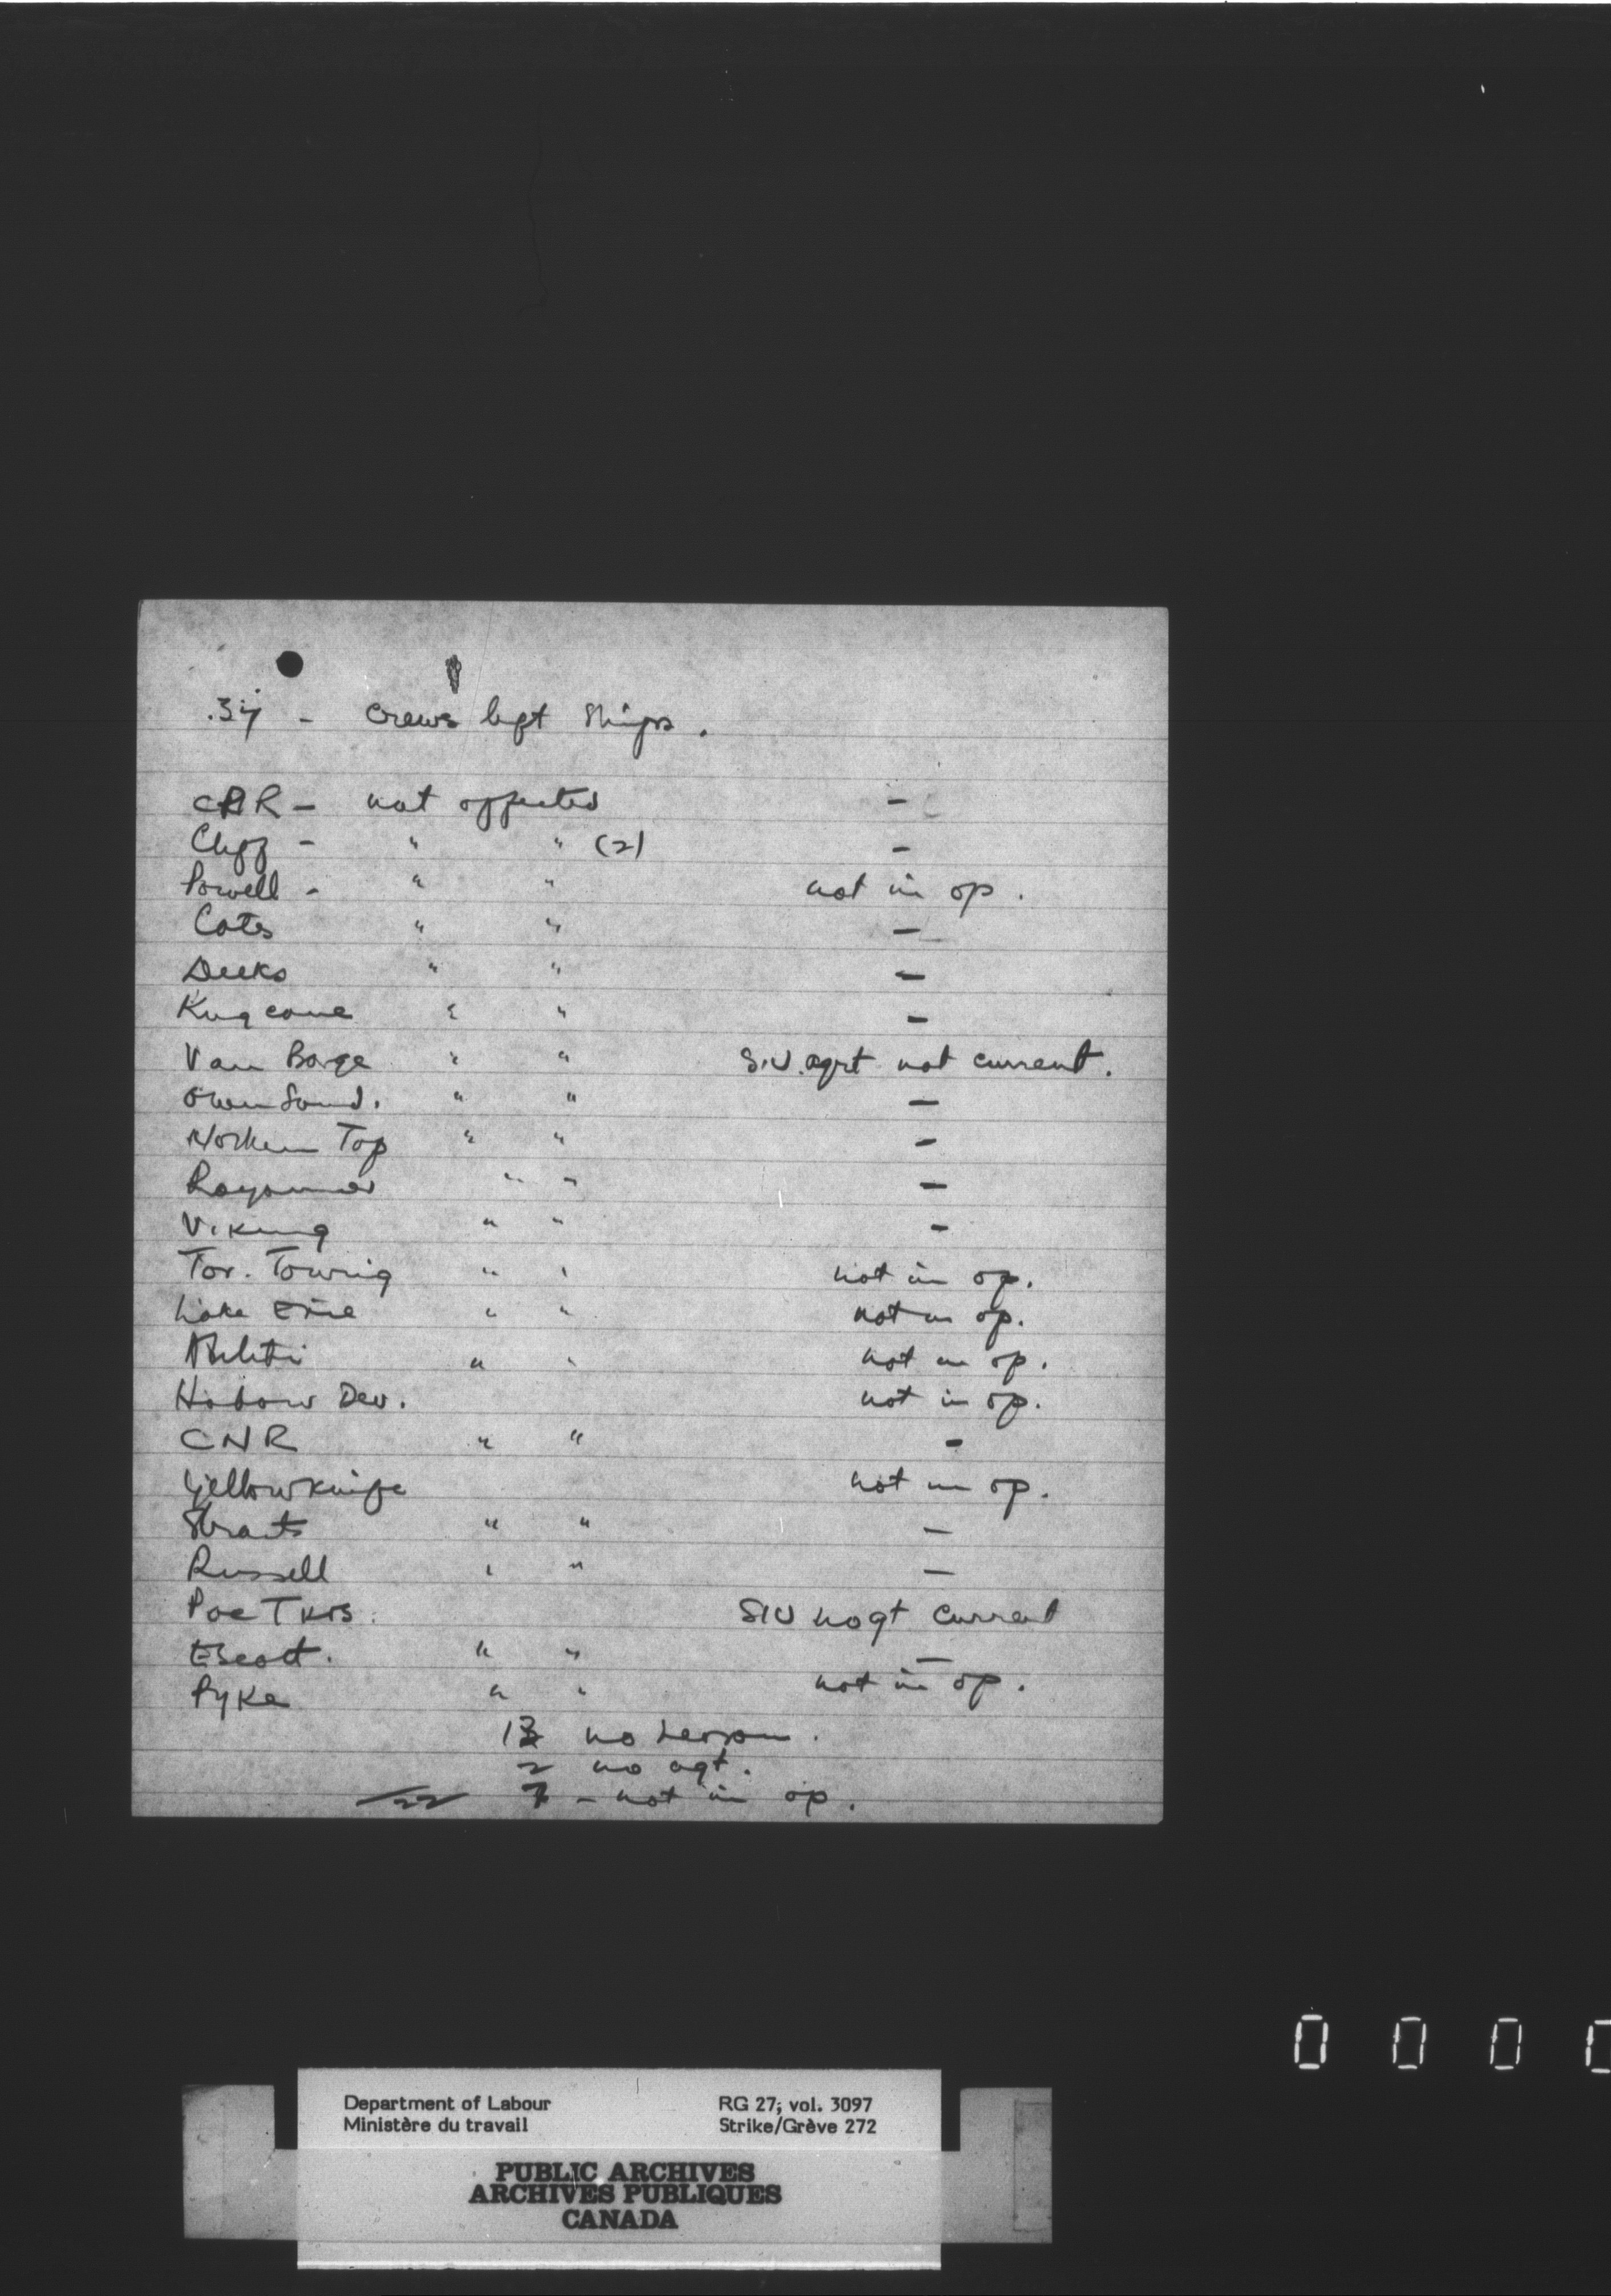 37 - crews left ships.
CPR - not affected -
Cliff - " " (2) -
Powell - " " not in op.
Cates " " -
Deeks " " -
Kingcome " " -
Van Barge " " S.I.U. agrt not current.
Owen Sound. " " -
Northern Top " " -
" " -
Viking " " -
Tor. Towing " " not in op.
Lake Erie " " not in op.
Abitibi " " not in op.
Harbour Dev. not in op.
CNR " " -
Yellowknife not in op.
Straits " " -
Russell " " -
Pac Tkrs. SIU no agt current
Escott. " " -
Pyke " " not in op.
13 no
2 no agt.
22 7 - not in op.
0 0 0 0
Department of Labour RG 27, vol. 3097
Ministère du travail Strike/Grève 272
PUBLIC ARCHIVES
ARCHIVES PUBLIQUES
CANADA